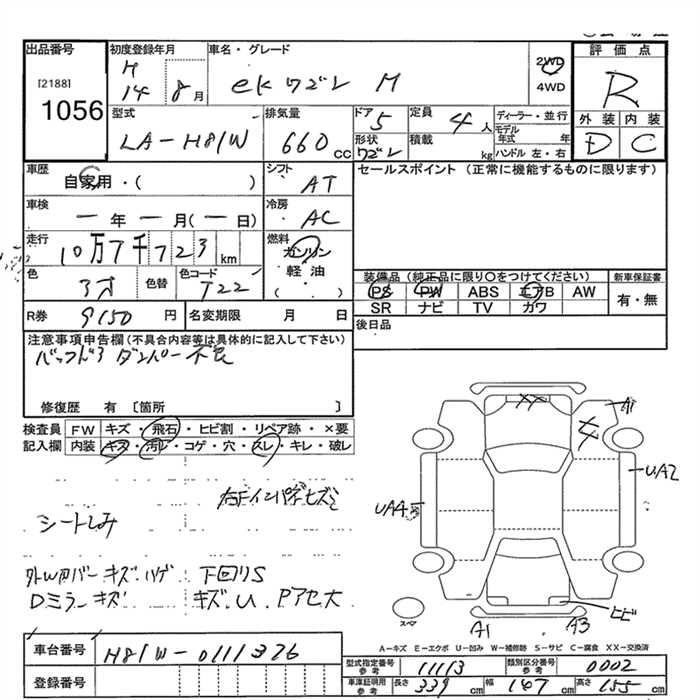 出品番号
[2188]
1056
初度登録年月
H
14 8月
車名・グレード
ekワゴン M
2WD
4WD
評価点
R
外装 内装
D C
型式
LA-H81W
排気量
660 cc
ドア 5
形状 ワゴン
定員 4人
積載 kg
ディーラー・並行
モデル年式 年
ハンドル 左・右
車歴
自家用・( )
シフト AT
セールスポイント (正常に機能するものに限ります)
車検
ー年ー月(ー日)
冷房 AC
走行
10万7千723 km
燃料
ガソリン
軽油
( )
色
色替
色コード
T22
装備品 (純正品に限り〇をつけてください)
新車保証書
PS PW ABS エアB AW
SR ナビ TV カワ
有・無
R券 9150 円
名変期限 月 日
後日品
注意事項申告欄(不具合内容等は具体的に記入して下さい)
バックドア ダンパー不良
修復歴 有 [箇所 ]
検査員
記入欄
FW キズ・飛石・ヒビ割・リペア跡・×要
内装 キズ・汚レ・コゲ・穴・スレ・キレ・破レ
シートしみ
外Wカバーキズ・ハゲ
Dミラーキズ
下回りS
キズ.U.Pアセ大
XX
XX
A1
UA2
UA4
スペア
A1
A3
ヒビ
A-キズ E-エクボ U-凹み W-補修跡 S-サビ C-腐食 XX-交換済
車台番号 H81W-0111326
登録番号
型式指定番号
参考
11113
類別区分番号
参考
0002
車庫証明用
参考
長さ 339 cm
幅 147 cm
高さ 155 cm